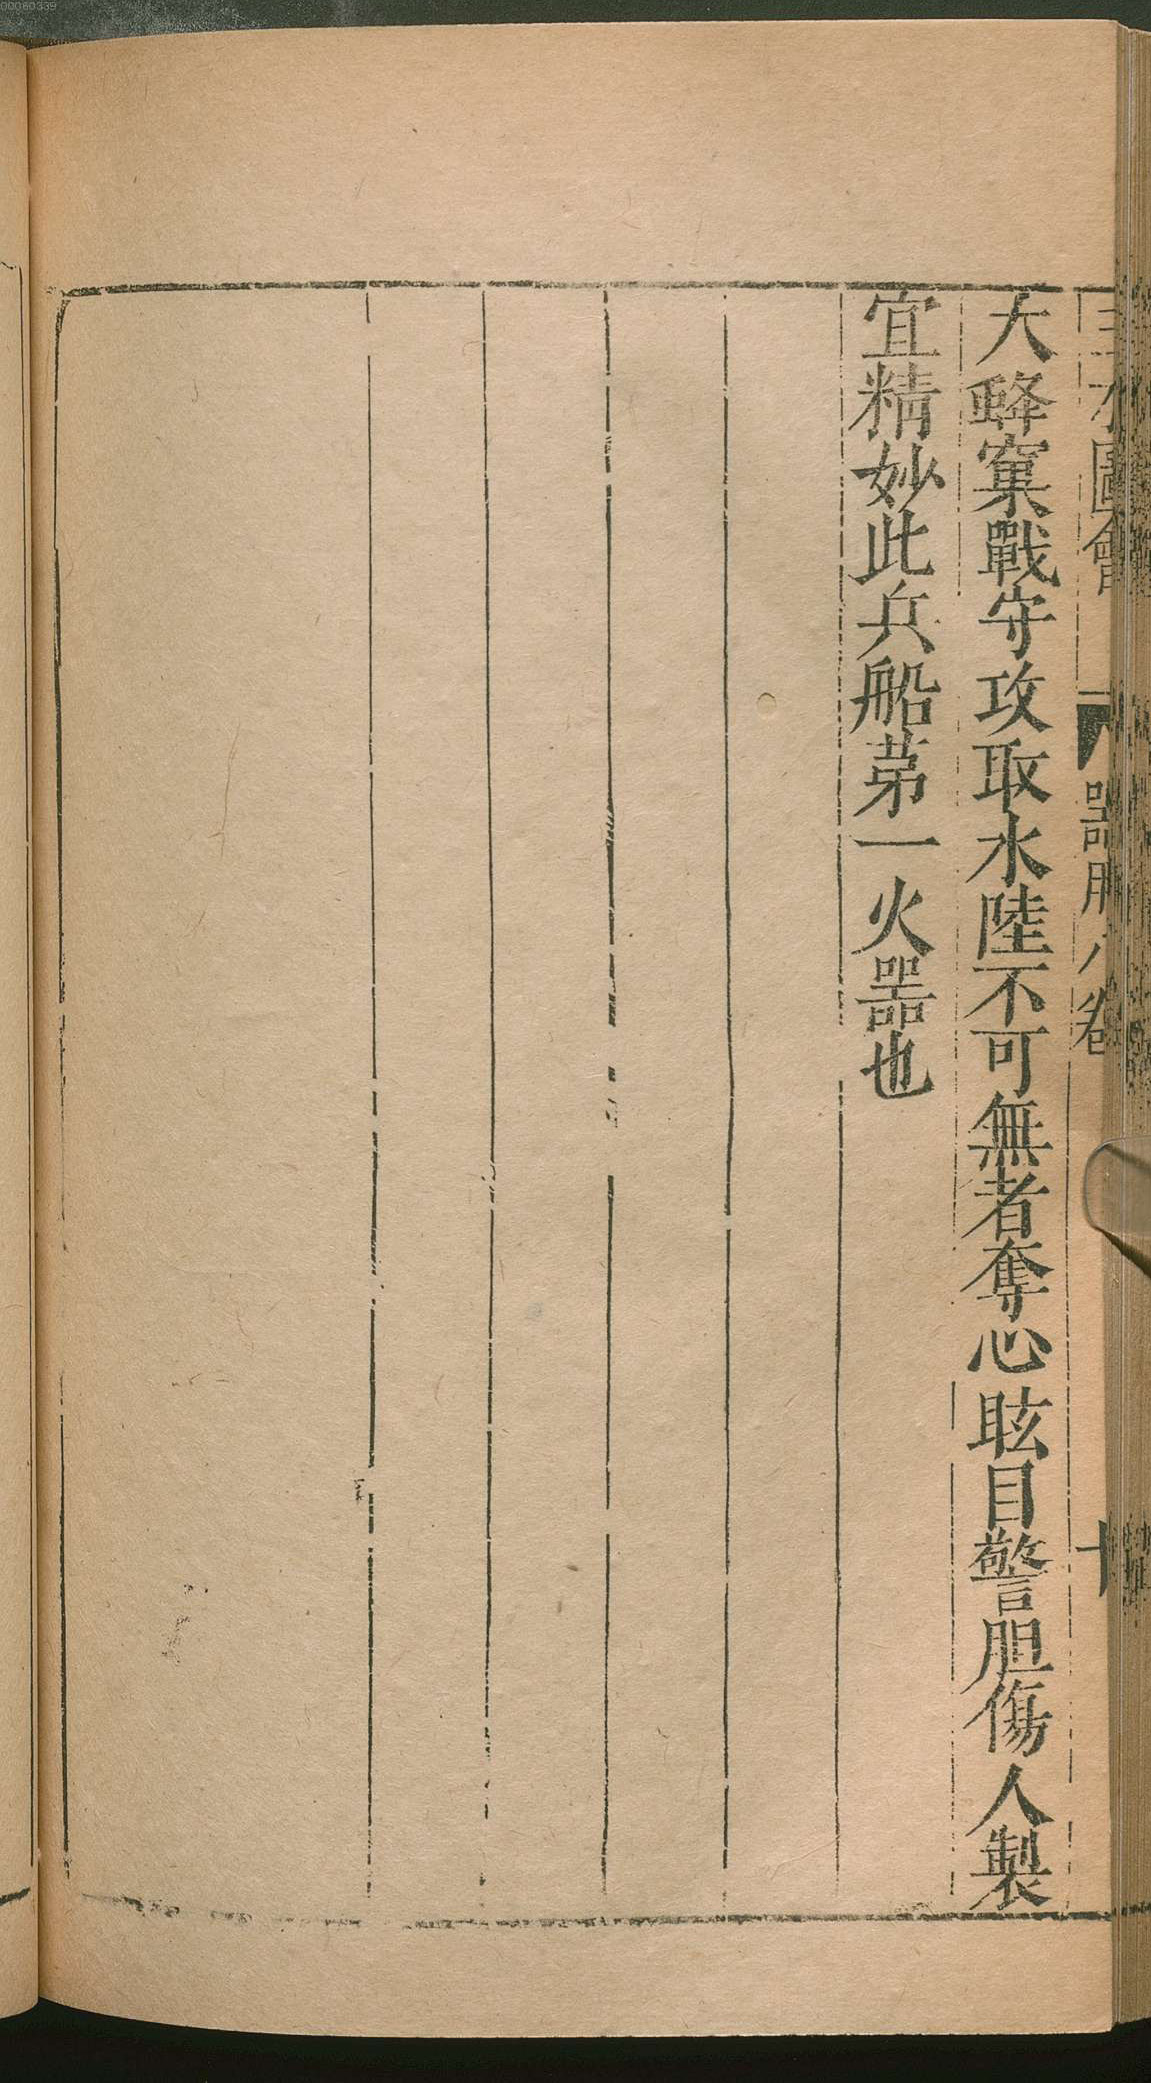 圖會 器用八卷 十
大蜂窠戰守攻取水陸不可無者奪心眩目警胆傷人製
宜精妙此兵船苐一火器也
00060339